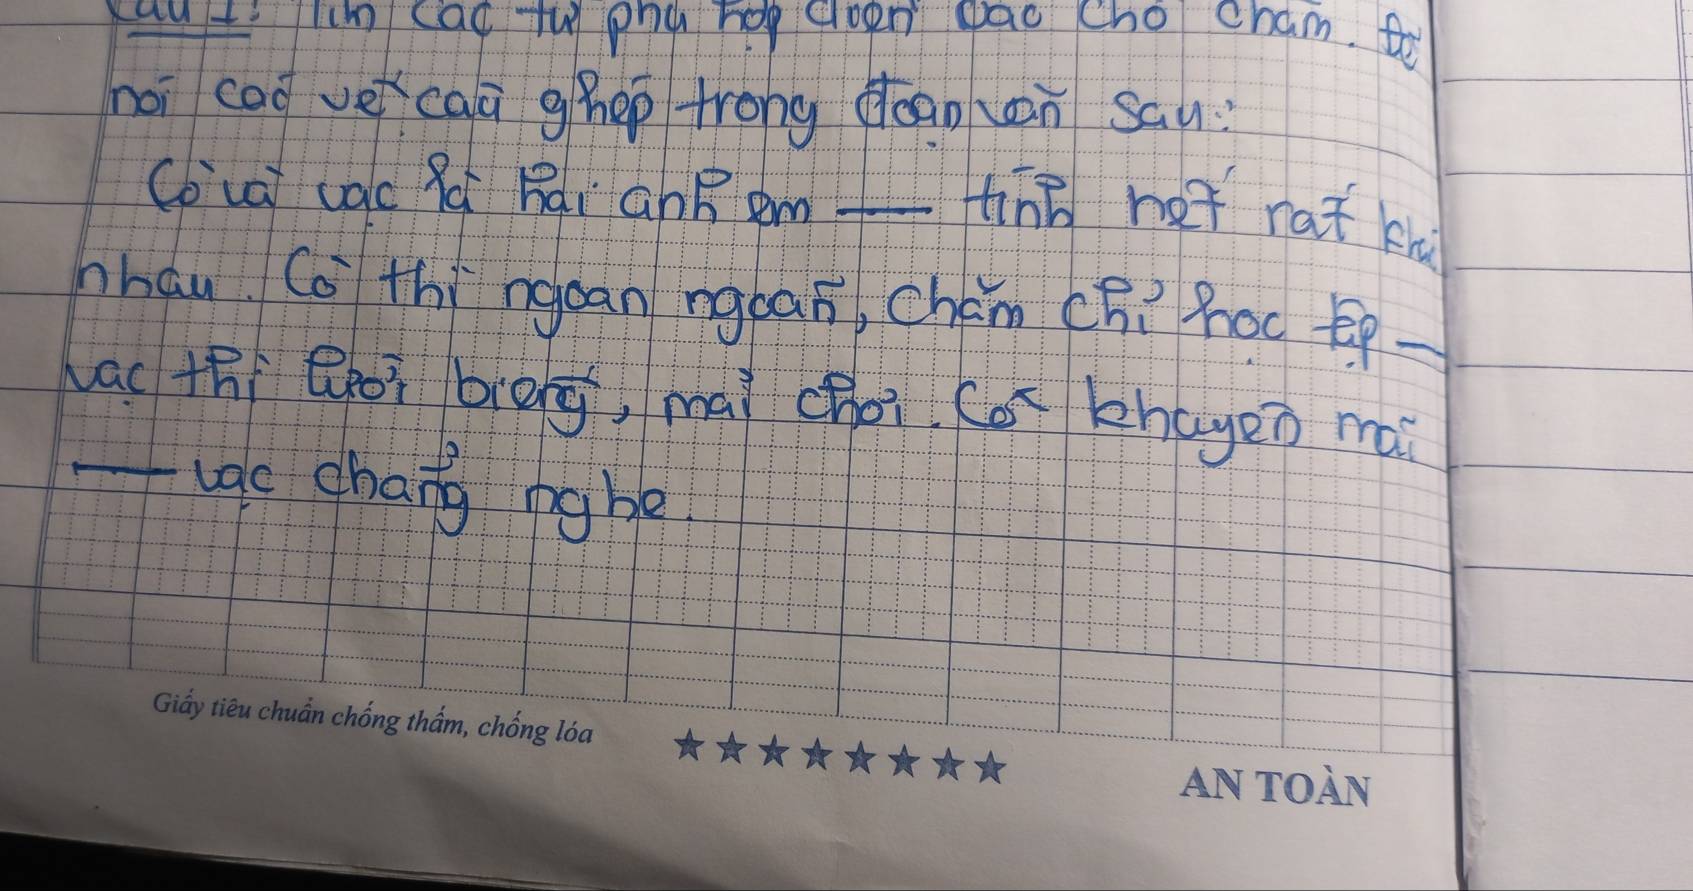 Câu 1: Tìm các từ phù hợp điền vào chỗ chấm. để
nối các vế câu ghép trong đoạn văn sau:
Cò và vạc là hai anh em — tính nết rất khá
nhau. Cò thì ngoan ngoãn, chăm chỉ học tập —
vạc thì lười biếng, mải chơi. Cò khuyên mãi
— vạc chẳng nghe.
Giấy tiêu chuẩn chống thấm, chống lóa
AN TOÀN